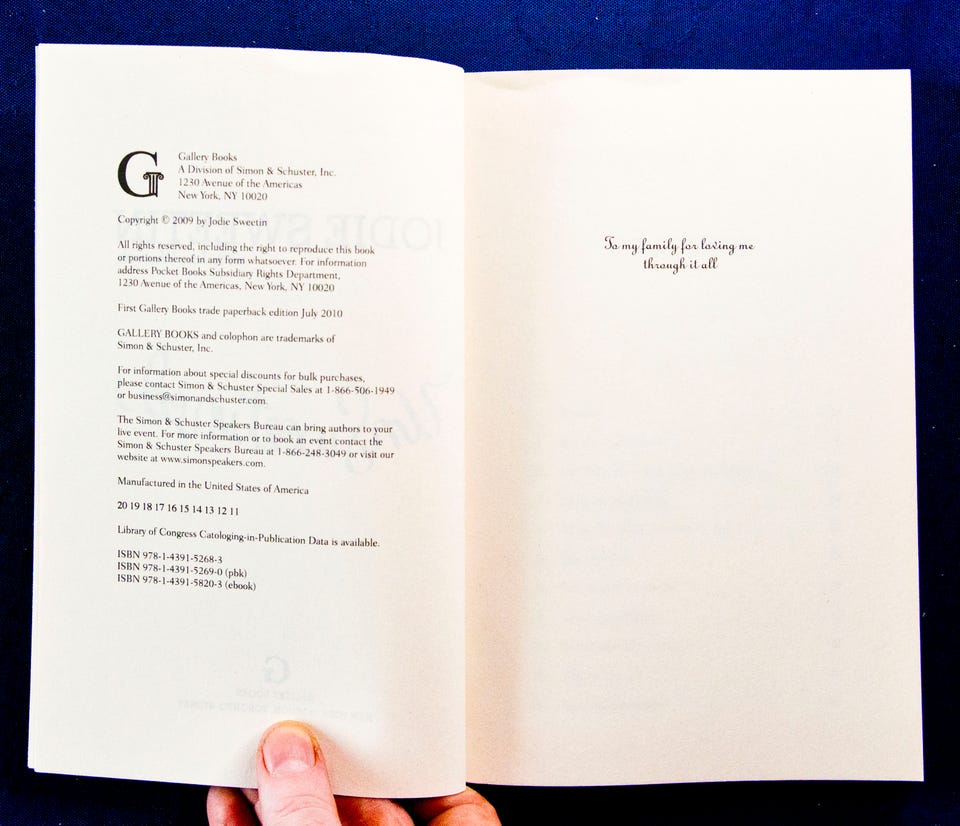 G
Gallery Books
A Division of Simon & Schuster, Inc.
1230 Avenue of the Americas
New York, NY 10020
Copyright © 2009 by Jodie Sweetin
All rights reserved, including the right to reproduce this book
or portions thereof in any form whatsoever. For information
address Pocket Books Subsidiary Rights Department,
1230 Avenue of the Americas, New York, NY 10020
First Gallery Books trade paperback edition July 2010
GALLERY BOOKS and colophon are trademarks of
Simon & Schuster, Inc.
For information about special discounts for bulk purchases,
please contact Simon & Schuster Special Sales at 1-866-506-1949
or business@simonandschuster.com.
The Simon & Schuster Speakers Bureau can bring authors to your
live event. For more information or to book an event contact the
Simon & Schuster Speakers Bureau at 1-866-248-3049 or visit our
website at www.simonspeakers.com.
Manufactured in the United States of America
20 19 18 17 16 15 14 13 12 11
Library of Congress Catologing-in-Publication Data is available.
ISBN 978-1-4391-5268-3
ISBN 978-1-4391-5269-0 (pbk)
ISBN 978-1-4391-5820-3 (ebook)
To my family for loving me
through it all